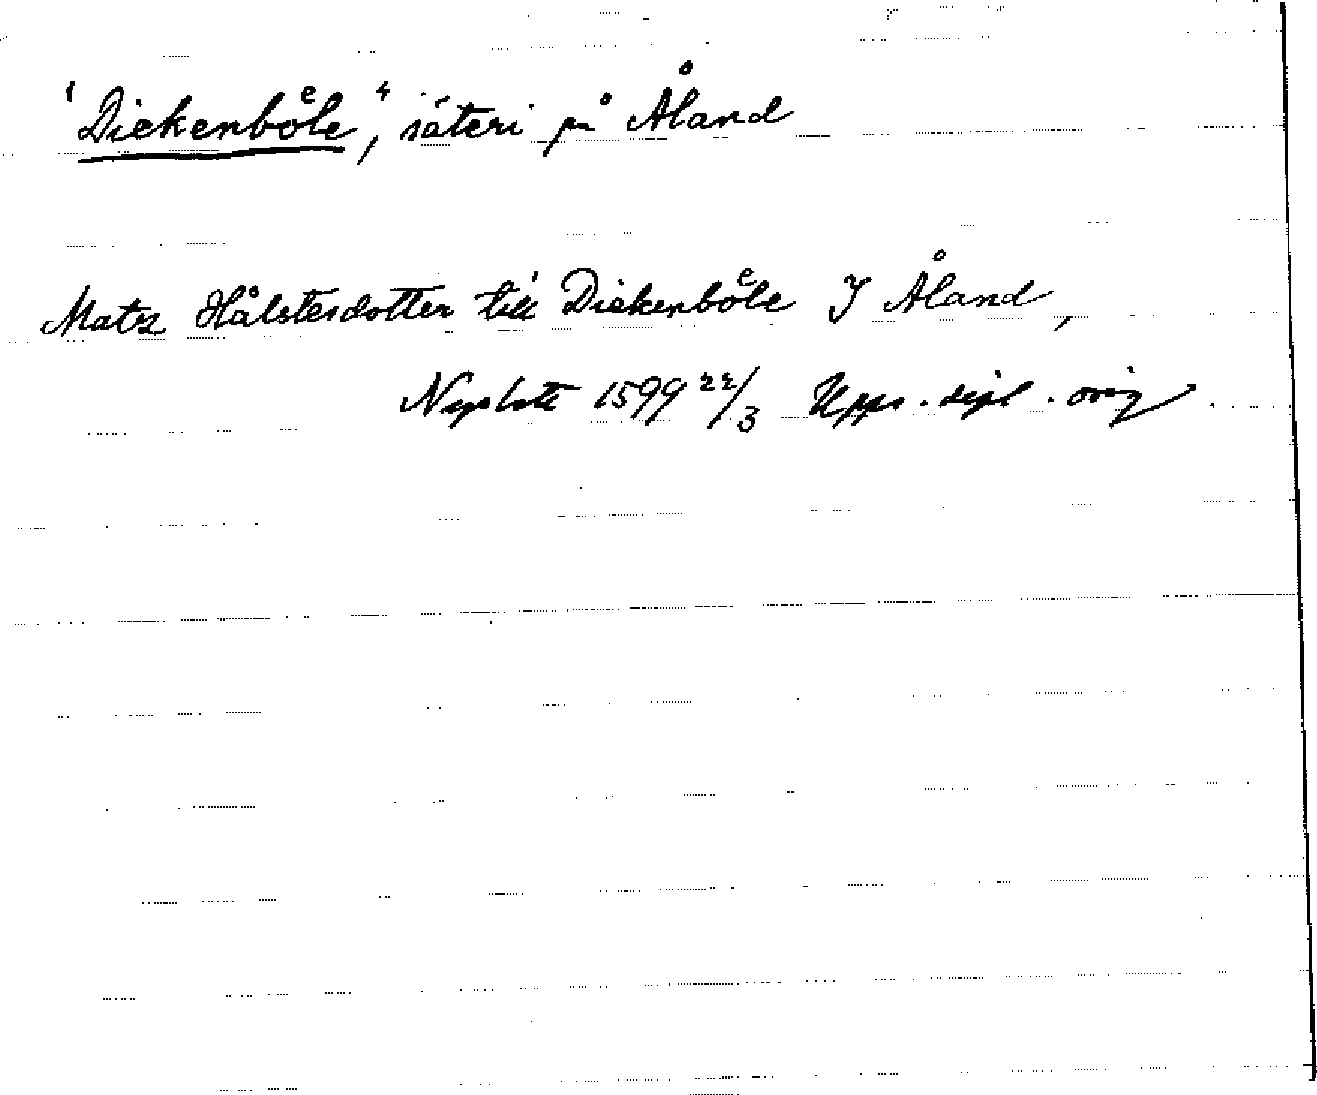 'Diekenboͤle', säteri på Åland
Matz Hålstesdotter till Diekenboͤle J Åland,
Nyslott 1599 22/3 Upps. dipl. orig